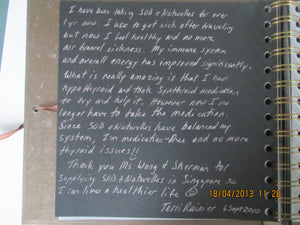 I have been taking SOD & Naturelles for over
1 yr now. I use to get sick after traveling
but now I feel healthy and no more
air travel sickness. My immune system
and overall energy has improved significantly.
What is really amazing is that I had
hypothyroid and took Synthroid medication
to try and help it. However now I no
longer have to take the medication.
Since SOD & Naturelles have balanced my
system, I'm medication-free and no more
thyroid issues!!
Thank you Ms Wong & Sherman for
supplying SOD & Naturelles in Singapore so
I can live a healthier life ☺
Terri Rainier 6 Sept 2010
18/04/2013 11:26